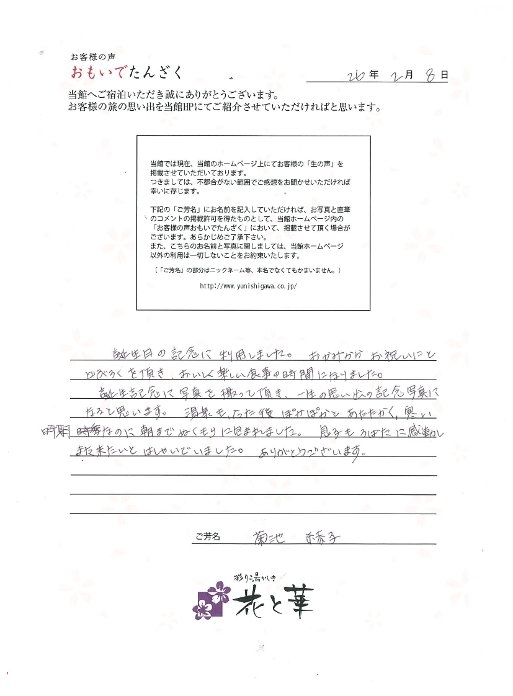 お客様の声
おもいでたんざく
26年 2月 8日
当館へご宿泊いただき誠にありがとうございます。
お客様の旅の思い出を当館HPにてご紹介させていただければと思います。
当館では現在、当館のホームページ上にてお客様の「生の声」を
掲載させていただいております。
つきましては、不都合がない範囲でご感想をお聞かせいただければ
幸いに存じます。
下記の「ご芳名」にお名前を記入していただければ、お写真と直筆
のコメントの掲載許可を得たものとして、当館ホームページ内の
「お客様の声おもいでたんざく」において、掲載させて頂く場合が
ございます。あらかじめご了承下さい。
また、こちらのお名前と写真に関しましては、当館ホームページ
以外の利用は一切しないことをお約束いたします。
(「ご芳名」の部分はニックネーム等、本名でなくてもかまいません。)
http://www.yunishigawa.co.jp/
誕生日の記念に利用しました。おかみから お祝いにと
を頂き、おいしく楽しい食事の時間になりました。
誕生記念に写真を撮って頂き、一生の思い出の記念写真に
なると思います。温泉も、た後 ぽかぽかと あたたかく、寒い
時期なのに 朝まで ぬくもりに包まれました。息子も ろばたに感動し
また来たいと はしゃいでいました。ありがとうございます。
ご芳名 菊池
彩り湯かしき
花と華